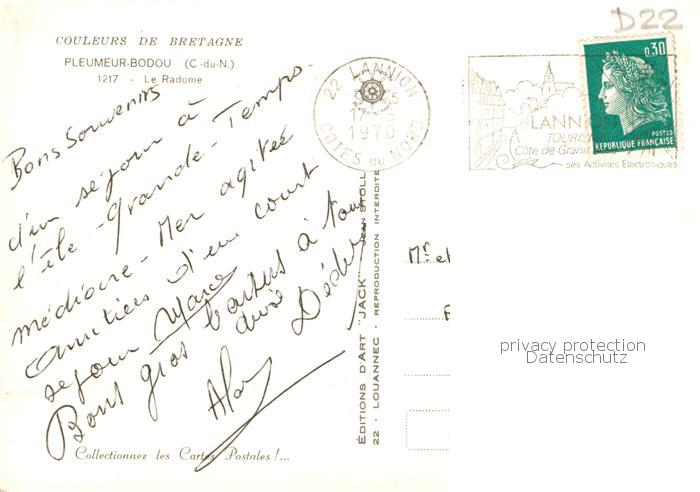 D22
COULEURS DE BRETAGNE
PLEUMEUR-BODOU (C-du-N.)
1217 - Le Radome
22 LANNION
17-
1970
COTES-DU-NORD
LANN
TOURIS
Côte de Grani
ses Activités Electroniques
0,30
POSTES
REPUBLIQUE FRANÇAISE
Bons Souvenirs
d'un séjour à
l'île-Grande - Temps
médiocre - Mer agitée
d'un court
séjour
Bons gros baisers à tous
Alan
Mr et
EDITIONS D'ART "JACK" JEAN STOLL
22 - LOUANNEC - REPRODUCTION INTERDITE
Collectionnez les Cartes Postales !...
privacy protection
Datenschutz